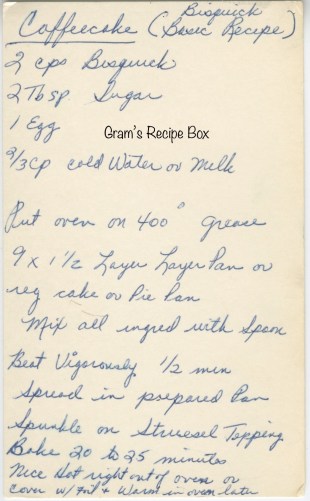 Bisquick
Coffeecake (Basic Recipe)
2 cps Bisquick
2 Tbsp Sugar
1 Egg
Gram's Recipe Box
2/3 cp cold Water or Milk
Put oven on 400° grease
9 x 1 1/2 Layer Layer Pan or
reg cake or Pie Pan
Mix all ingred with Spoon
Beat Vigorously 1/2 min
Spread in prepared Pan
Sprinkle on Struesel Topping
Bake 20 to 25 minutes
Nice Hot right out of oven or
Cover w/ Foil & Warm in oven later